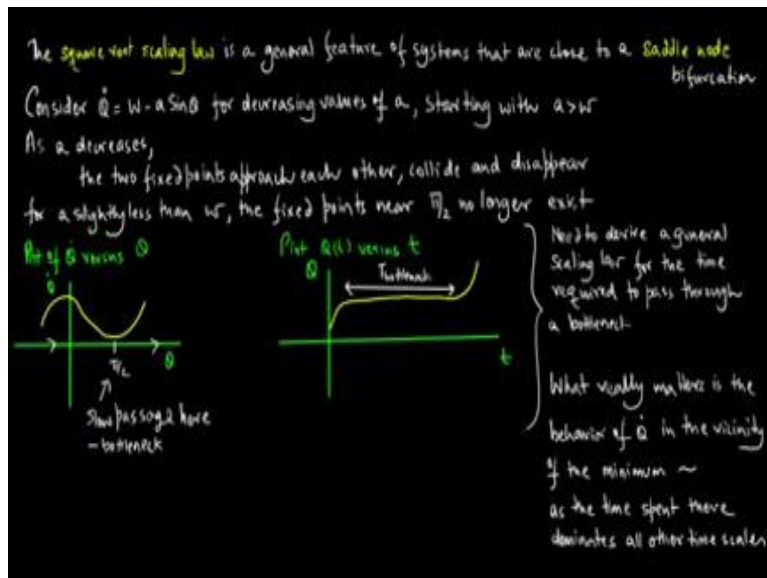 The square root scaling law is a general feature of systems that are close to a saddle node
bifurcation
Consider Q̇ = W - a Sin Q for decreasing values of a, starting with a > w
As a decreases,
the two fixed points approach each other, collide and disappear
for a slightly less than w, the fixed points near π/2 no longer exist
Plot of Q̇ versus Q
Q̇
Q
π/2
Slow passage here
- bottleneck
Plot Q(t) versus t
Q
Tbottleneck
t
Need to derive a general
scaling law for the time
required to pass through
a bottleneck
What really matters is the
behavior of Q̇ in the vicinity
of the minimum ~
as the time spent there
dominates all other time scales